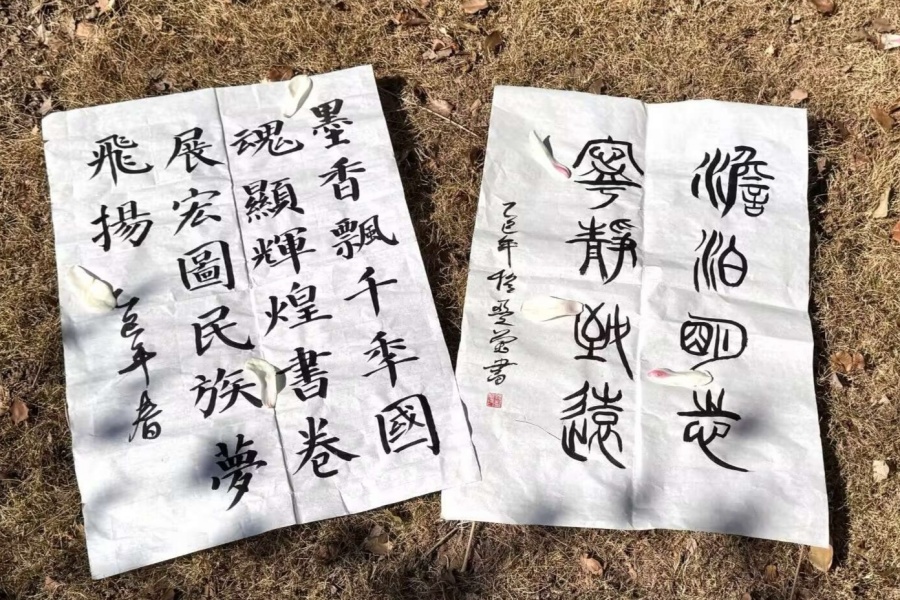 墨香飄千秊國
魂顯輝煌書卷
展宏圖民族夢
飛揚
乙巳年春
澹泊明志
寧靜致遠
乙巳年書